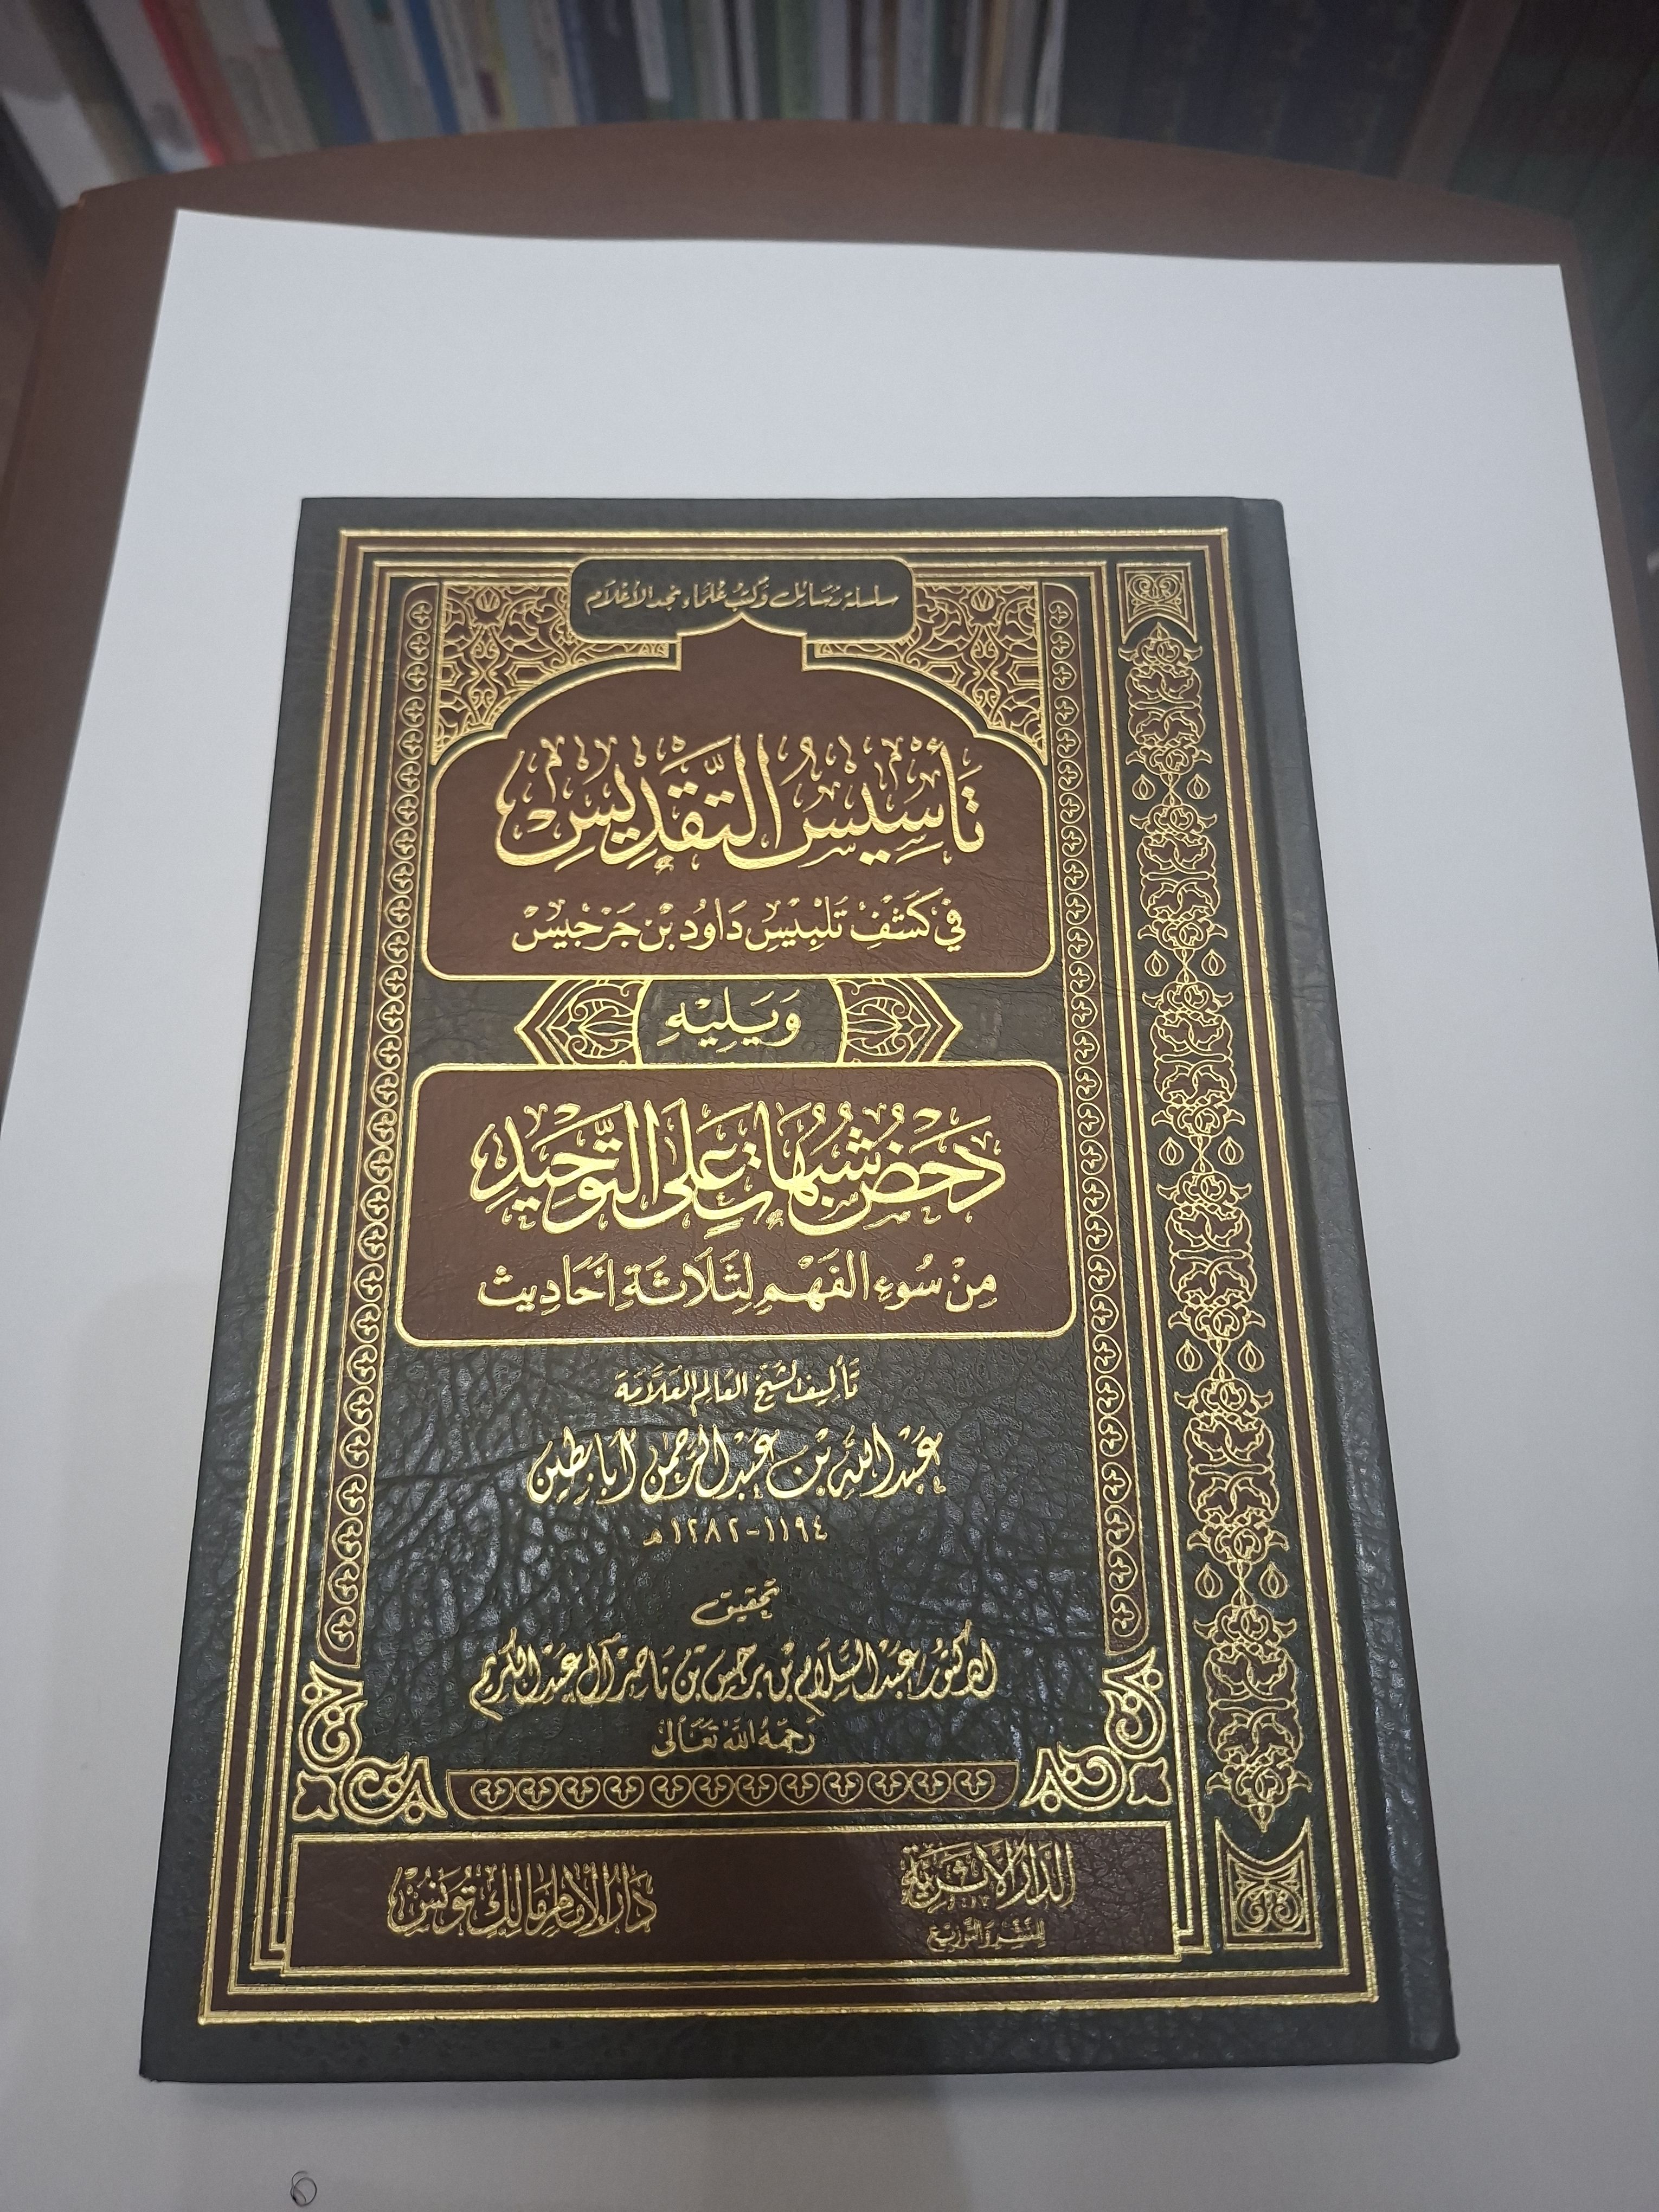 سلسلة رسائل وكتب علماء نجد الأعلام
تَأْسِيسُ التَّقْدِيسِ
فِي كَشْفِ تَلْبِيسِ دَاوُدَ بْنِ جَرْجِيسْ
وَيَلِيْهِ
دَحْضُ شُبُهَاتٍ عَلَى التَّوْحِيدِ
مِنْ سُوءِ الفَهْمِ لِثَلَاثَةِ أَحَادِيث
تأليف الشيخ العالم العلامة
عَبْدِ اللهِ بْنِ عَبْدِ الرَّحْمٰنِ أَبَا بَطِين
١١٩٤-١٢٨٢ هـ
تحقيق
الدكتور/ عبد السلام بن برجس بن ناصر آل عبد الكريم
رَحِمَهُ اللهُ تَعَالَىٰ
الدار الأثرية
للنشر والتوزيع
دار الإمام مالك تونس